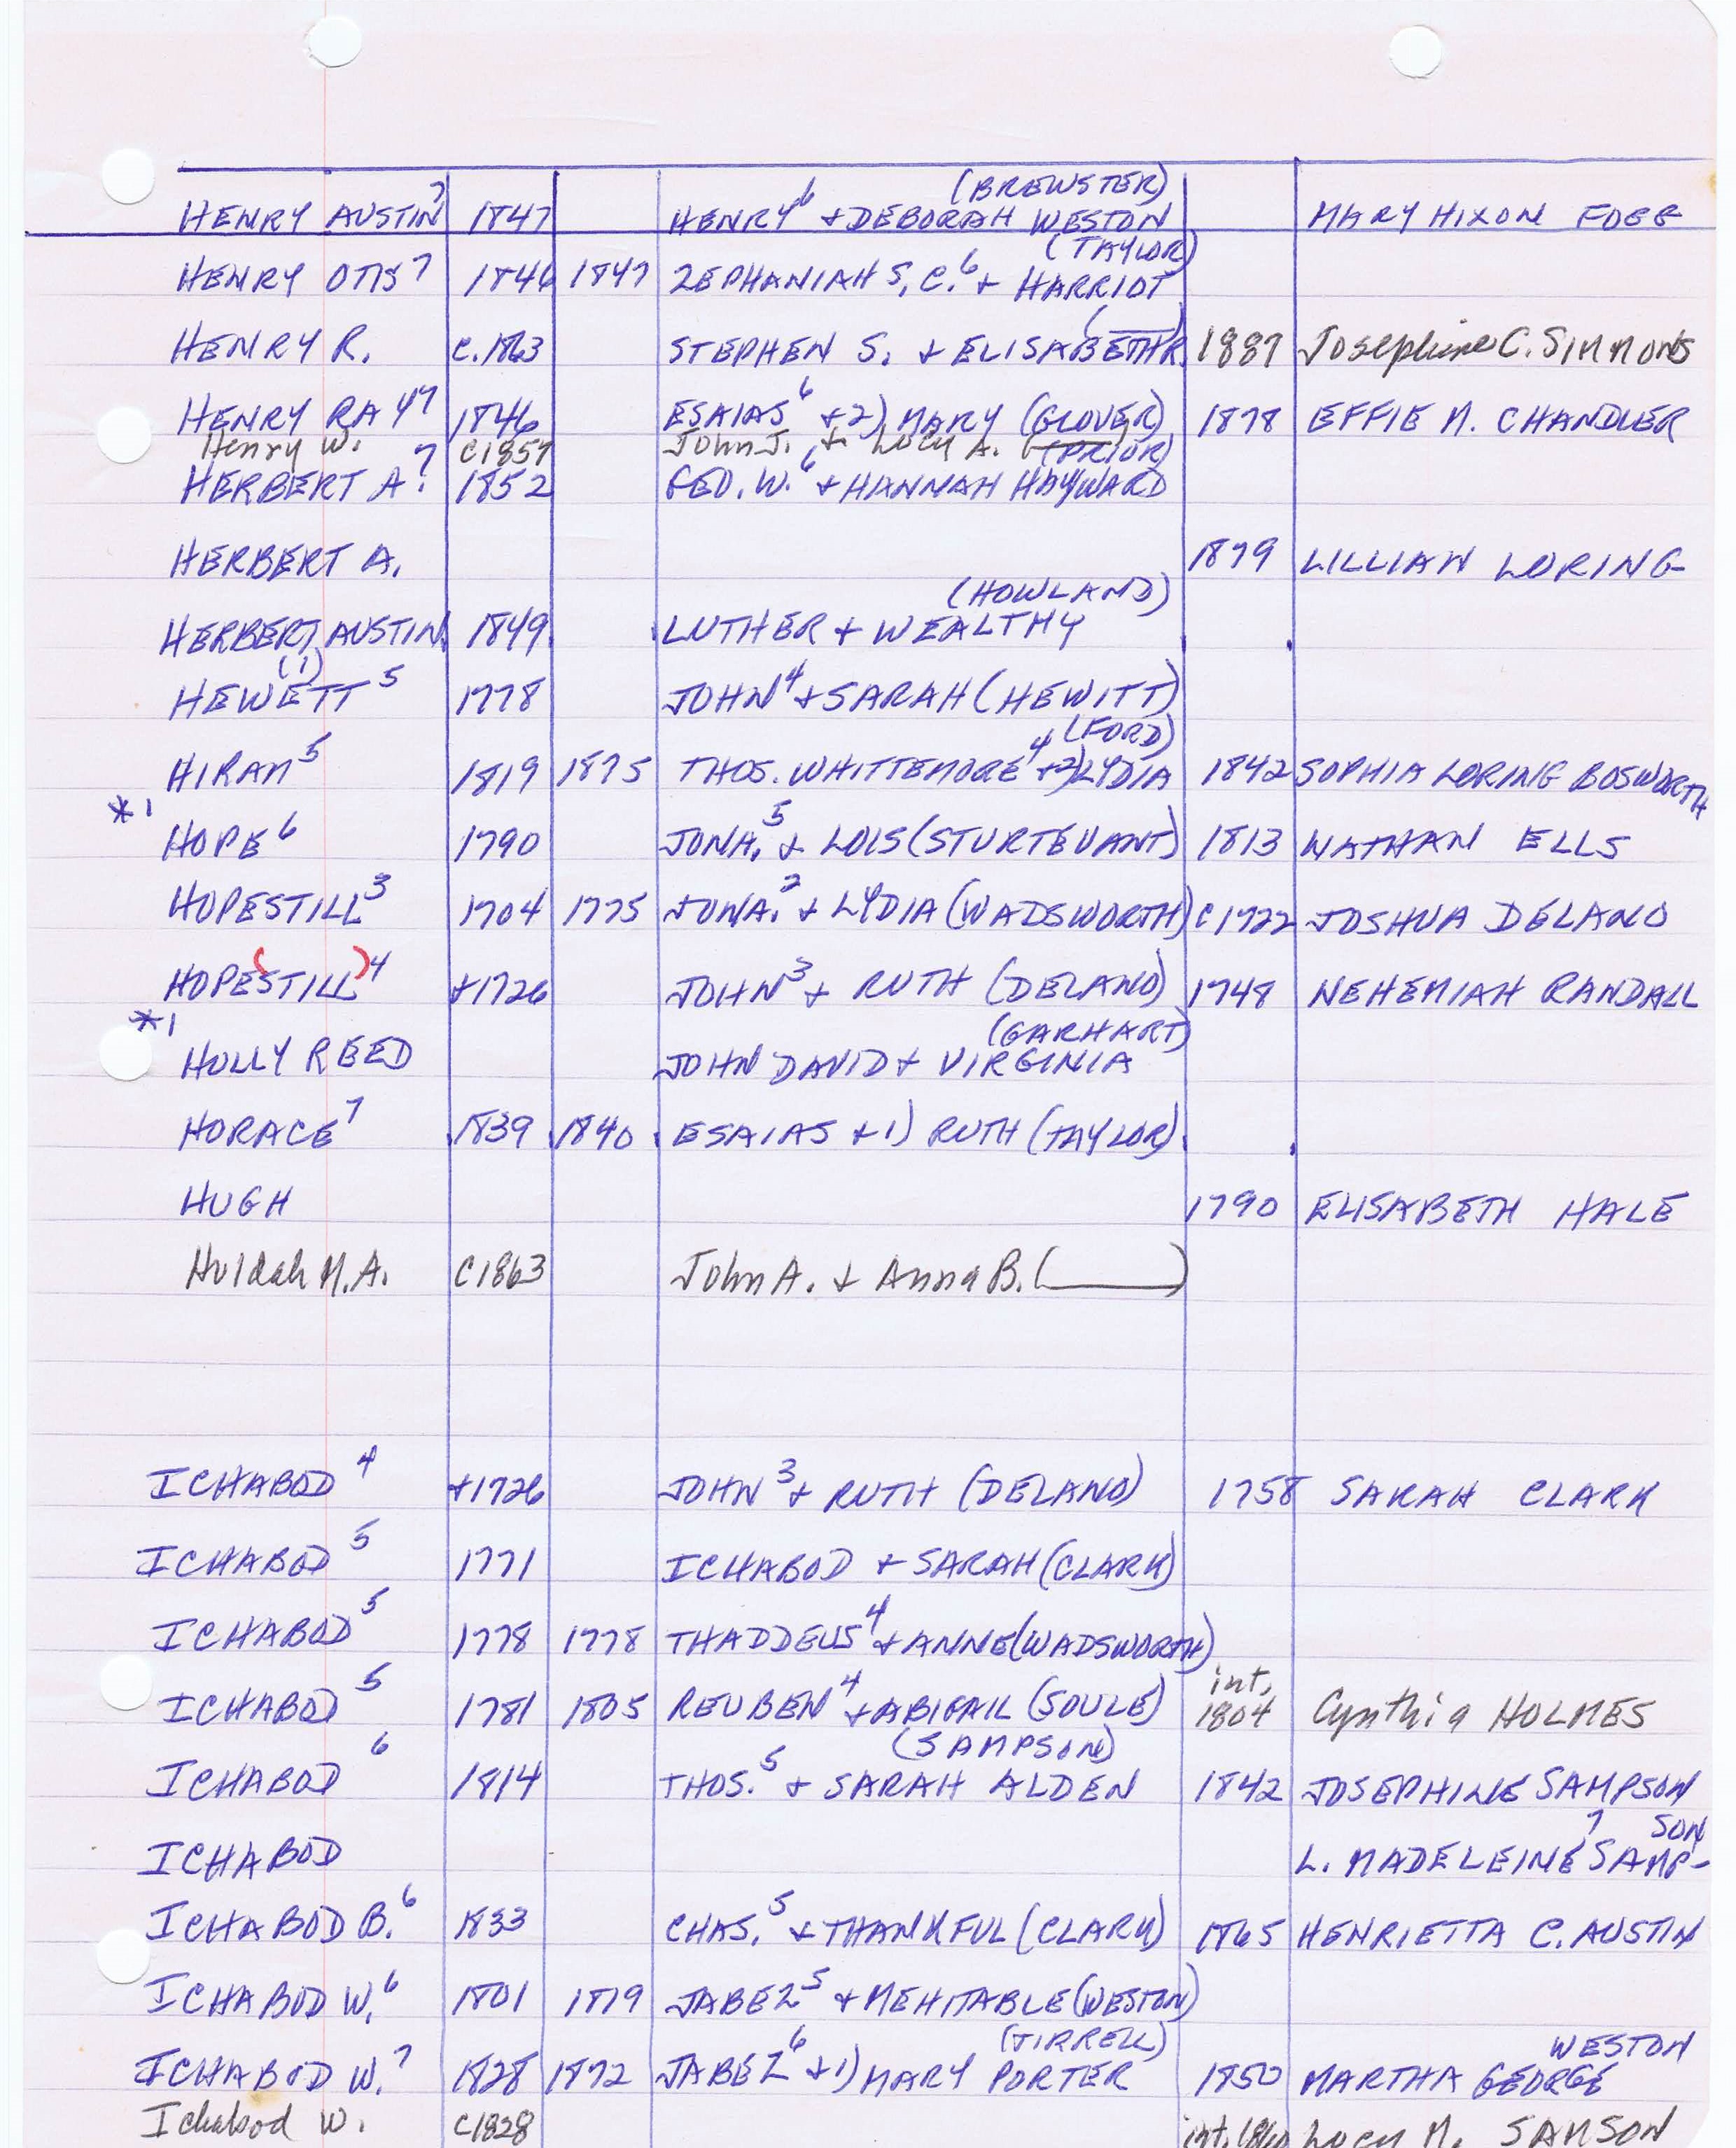 (BREWSTER)
HENRY AUSTIN 7 1847 HENRY 6 + DEBORAH WESTON MARY HIXON FOGG
(TAYLOR)
HENRY OTIS 7 1846 1847 ZEPHANIAH S. C. 6 + HARRIOT
HENRY R. c.1863 STEPHEN S. + ELISABETH R. (____) 1887 Josephine C. SIMMONS
HENRY RAY 7 1846 ESAIAS 6 + 2) MARY (GLOVER) 1878 EFFIE M. CHANDLER
Henry W. c1857 John J. + Lucy A. (____)
(PRIOR)
HERBERT A. 7 1852 GEO. W. 6 + HANNAH HAYWARD
HERBERT A. 1879 LILLIAN LORING
(HOWLAND)
HERBERT AUSTIN 1849 LUTHER + WEALTHY
(1)
HEWETT 5 1778 JOHN 4 + SARAH (HEWITT)
(FORD)
HIRAM 5 1819 1875 THOS. WHITTEMORE 4 + 2) LYDIA 1842 SOPHIA LORING BOSWORTH
*1
HOPE 6 1790 JONA. 5 + LOIS (STURTEVANT) 1813 NATHAN ELLS
HOPESTILL 3 1704 1775 JONA. 2 + LYDIA (WADSWORTH) c1722 JOSHUA DELANO
HOPE(STILL) 4 +1726 JOHN 3 + RUTH (DELANO) 1748 NEHEMIAH RANDALL
*1
(GARHART)
HOLLY REED JOHN DAVID + VIRGINIA
HORACE 7 1839 1840 ESAIAS + 1) RUTH (TAYLOR)
HUGH 1790 ELISABETH HALE
Huldah M.A. c1863 John A. + Anna B. (____)
ICHABOD 4 +1726 JOHN 3 + RUTH (DELANO) 1758 SARAH CLARK
ICHABOD 5 1771 ICHABOD + SARAH (CLARK)
ICHABOD 5 1778 1778 THADDEUS 4 + ANNE (WADSWORTH)
int.
ICHABOD 5 1781 1805 REUBEN 4 + ABIGAIL (SOULE) 1804 Cynthia HOLMES
(SAMPSON)
ICHABOD 6 1814 THOS. 5 + SARAH ALDEN 1842 JOSEPHINE SAMPSON
ICHABOD L. MADELEINE 7 SAMP-
SON
ICHABOD B. 6 1833 CHAS. 5 + THANKFUL (CLARK) 1865 HENRIETTA C. AUSTIN
ICHABOD W. 6 1801 1879 JABEZ 5 + MEHITABLE (WESTON)
(TIRRELL) WESTON
ICHABOD W. 7 1828 1872 JABEZ 6 + 1) MARY PORTER 1850 MARTHA GEORGE
Ichabod W. c1828 int. Lucy M. SAMSON